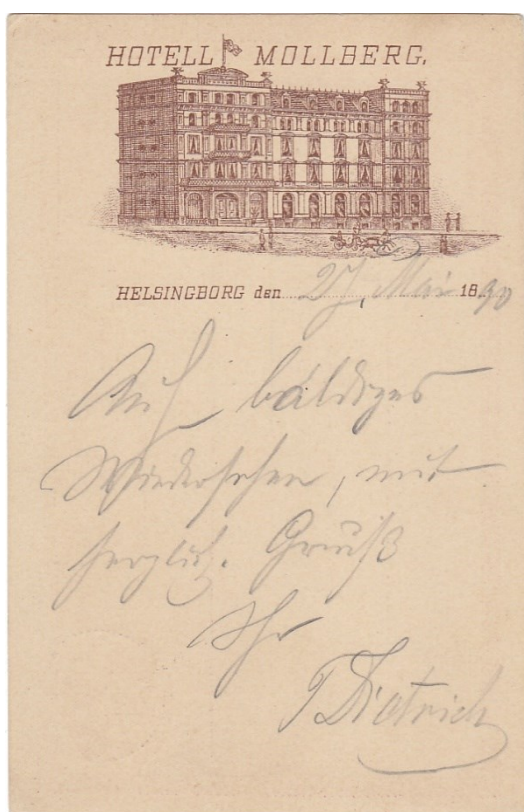 HOTELL MOLLBERG.
HELSINGBORG den 27. Mai 1890
Auf baldiges
Wiedersehen, mit
herzlich. Gruß
Ihr
T Dietrich